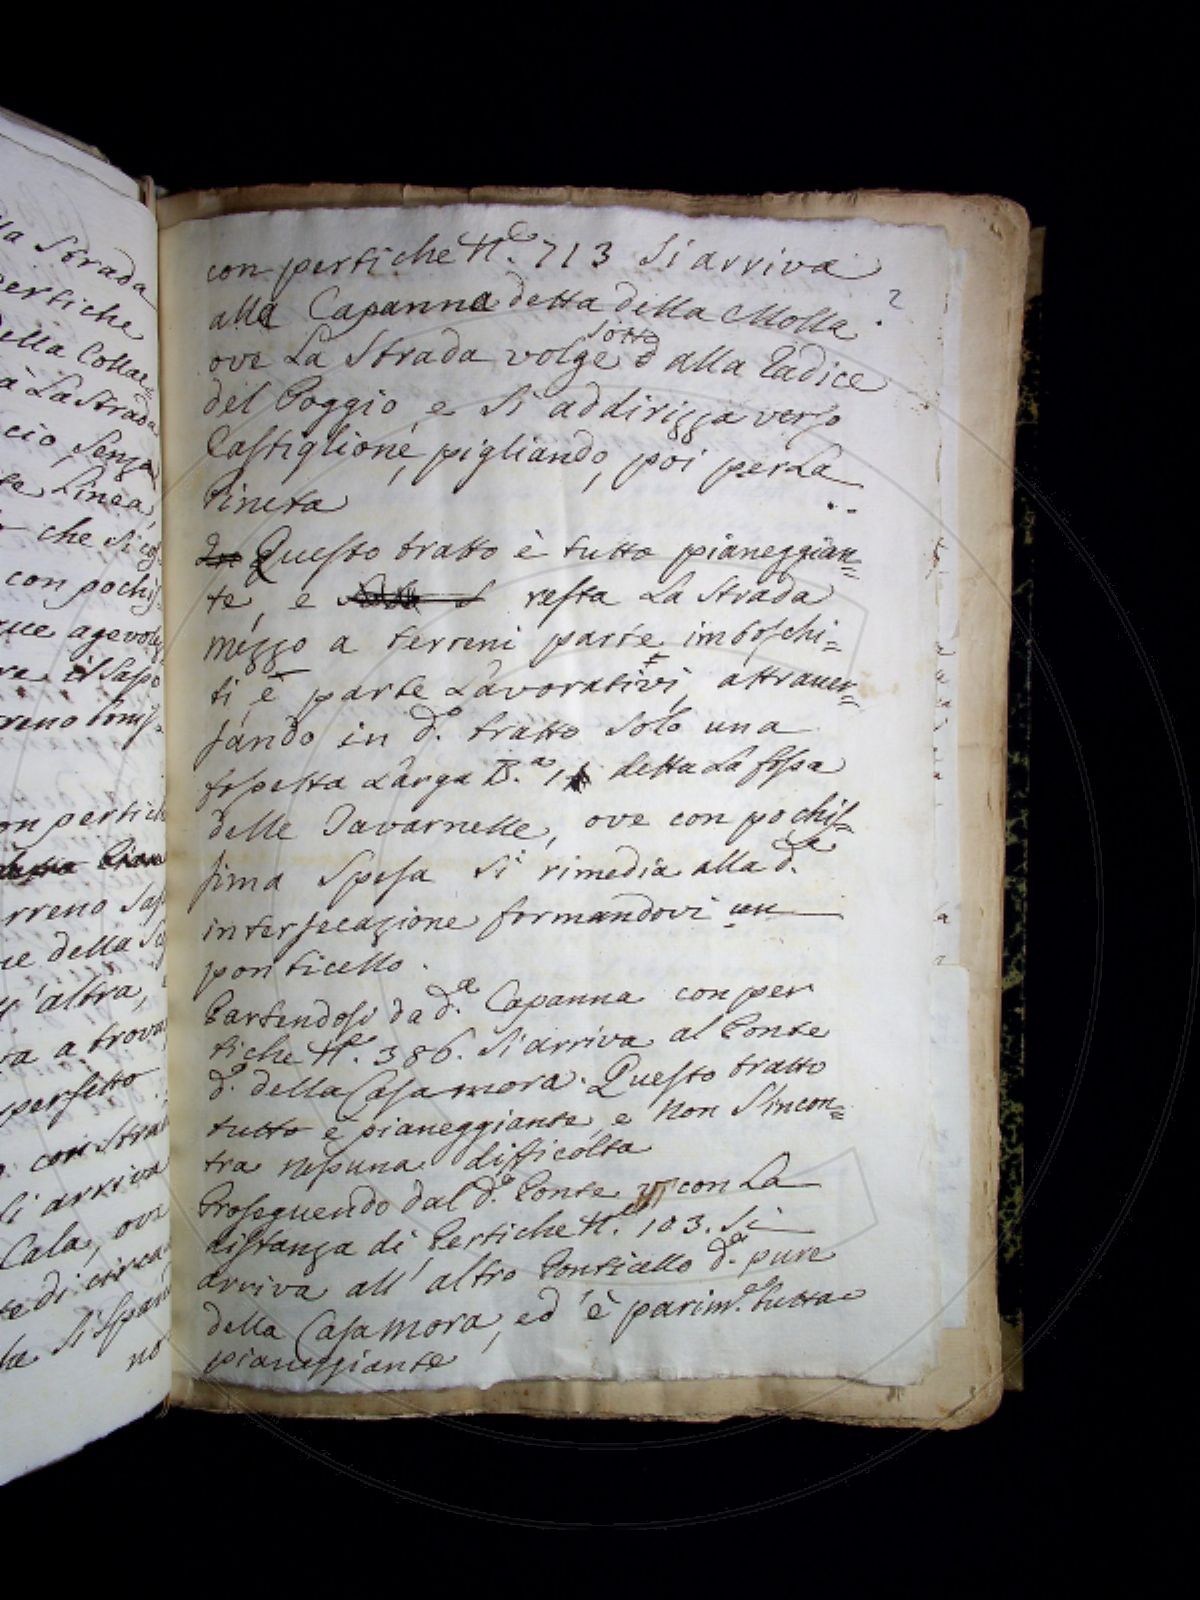 lla Strada
pertiche
della Collac=
à La Strada
cio senza
te Linea,
che si cos=
con pochis=
que agevol
re il Sapo
rreno bonis=
on pertich
rreno sas
ne della Se
l'altra,
ta a trova
perfetto
con Stra
si arriva
Cala, ove
te di circa
he si span
no
con pertiche N.e 713 si arriva
alla Capanna detta della Molla
ove La Strada volge sotto alla radice
del Poggio e si addirizza verso
Castiglione, pigliando, poi per La
Pineta
Questo tratto è tutto pianeggian=
te, e resta La Strada
mezzo a terreni parte imboschi=
ti e parte Lavorativi, attraver=
sando in d.o tratto solo una
fossetta Larga B.a 1 detta La fossa
delle Tavarnelle, ove con pochis=
sima spesa si rimedia alla d.a
intersecazione formandovi un
ponticello.
Partendosi da d.a Capanna con per
tiche N.e 386. si arriva al Ponte
d.o della Casa mora. Questo tratto
tutto è pianeggiante, e non s'incon=
tra nessuna difficoltà
Proseguendo dal d.o Ponte con La
distanza di Pertiche N.e 103. si
arriva all'altro Ponticello d.o pure
della Casa mora, ed è parim.e tutta
pianeggiante